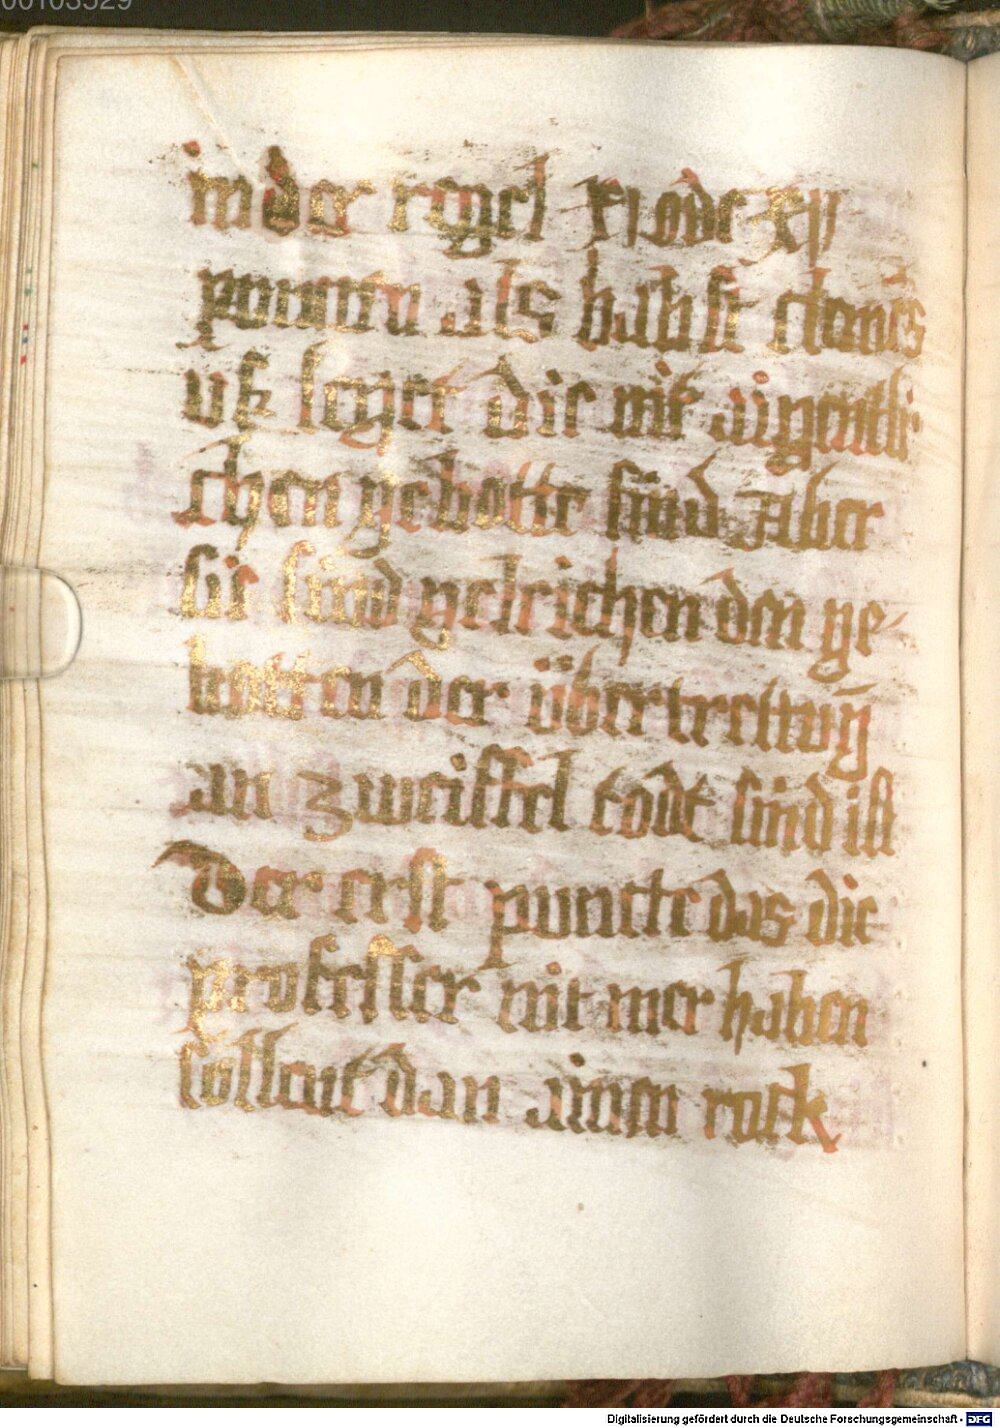 00103529
in der regel xi ode xij
puncta als babst clemēs
uß leget die nit aigentli
chen gebotte sind Aber
sie sind geleichen den ge-
botten der übertrettūg
an zweiffel todt sünd ist
Der erst puncte das die
professer nit mer haben
sollent dan ainen rock
Digitalisierung gefördert durch die Deutsche Forschungsgemeinschaft - DFG